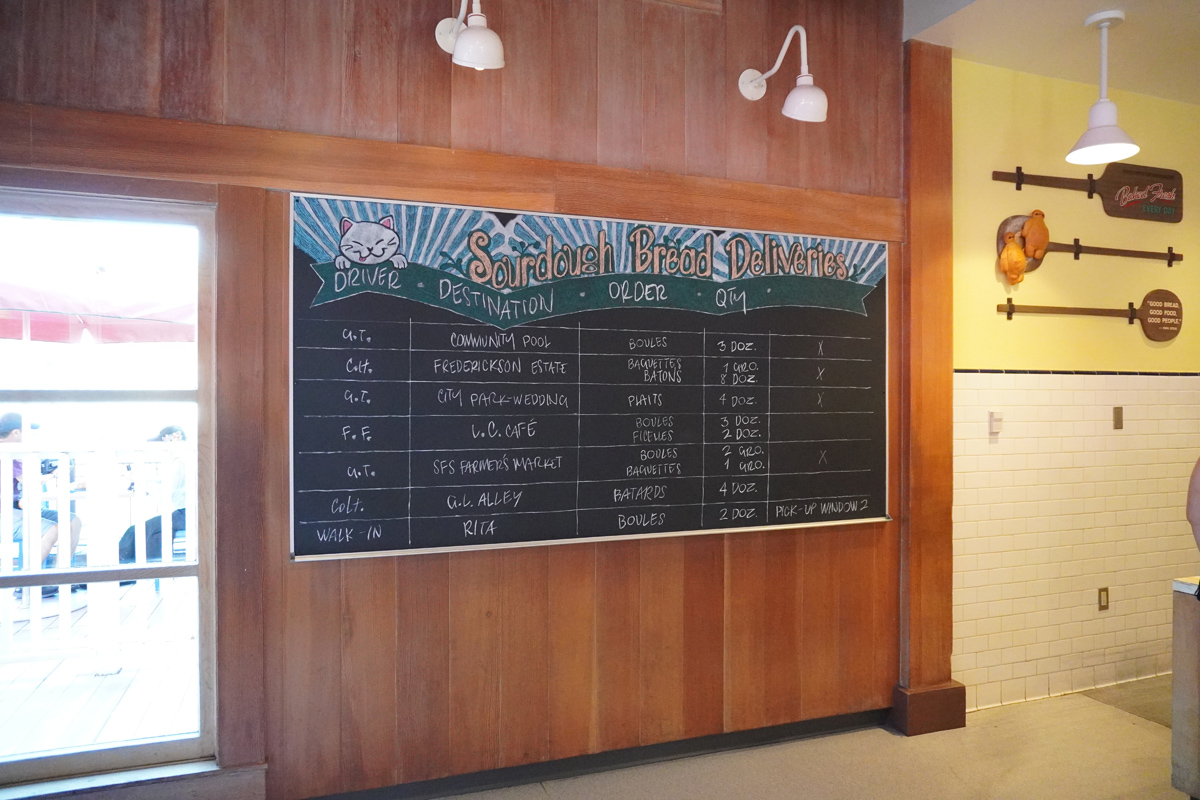 Sourdough Bread Deliveries
DRIVER · DESTINATION · ORDER · QTY ·
G.T. COMMUNITY POOL BOULES 3 DOZ. X
Colt. FREDERICKSON ESTATE BAGUETTES 1 GRO. X
BATONS 8 DOZ.
G.T. CITY PARK-WEDDING PLAITS 4 DOZ. X
F.F. L.C. CAFÉ BOULES 3 DOZ.
FICELLES 2 DOZ.
G.T. SFS FARMER'S MARKET BOULES 2 GRO. X
BAGUETTES 1 GRO.
Colt. G.L. ALLEY BATARDS 4 DOZ.
WALK-IN RITA BOULES 2 DOZ. PICK-UP WINDOW 2
Baked Fresh
EVERY DAY
"GOOD BREAD,
GOOD FOOD,
GOOD PEOPLE."